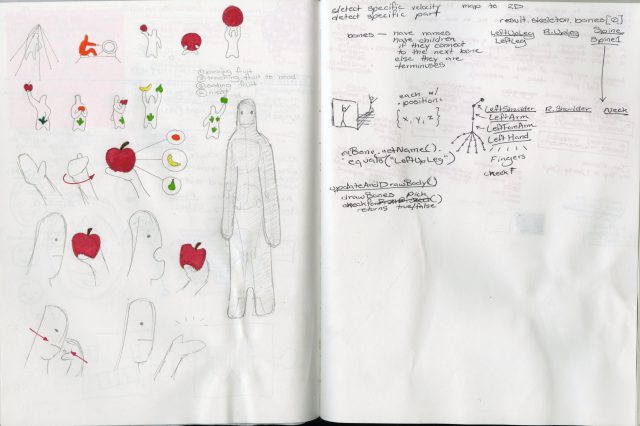 ① earning fruit
② attaching fruit to head
③ eating fruit
④ magic
detect specific velocity map to 2D
detect specific part
result.skeleton.bones[0]
bones — have names
have children
if they connect
to the next bone
else they are
terminuses
LeftUpLeg R.UpLeg Spine
LeftLeg Spine1
each w/
positions
{x, y, z}
LeftShoulder R.Shoulder Neck
LeftArm
LeftForeArm
LeftHand
Fingers
Bone.getName().
equals("LeftUpLeg")
updateAndDrawBody()
drawBones pick
returns true/false